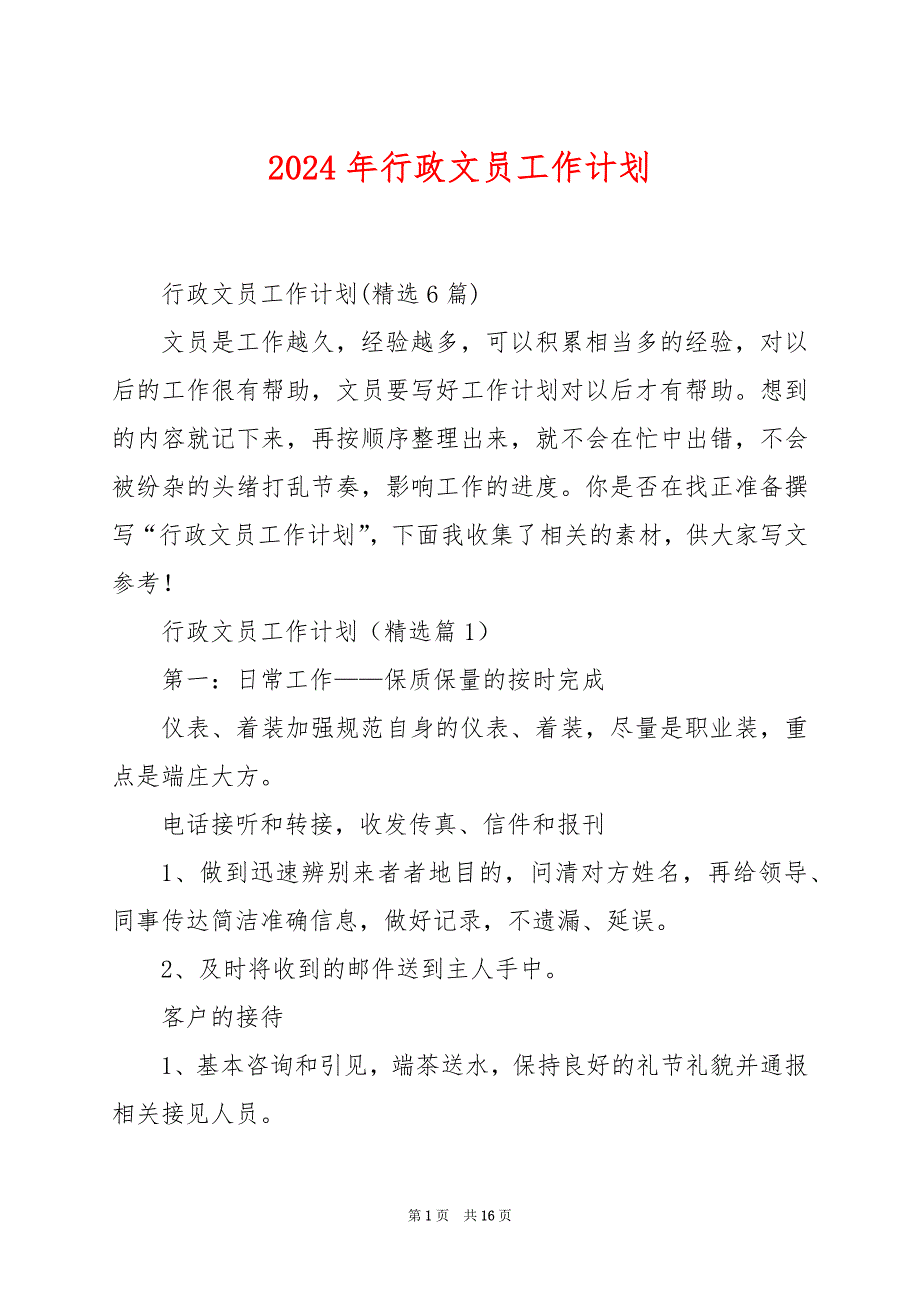 2024年行政文员工作计划
行政文员工作计划(精选6篇)
文员是工作越久，经验越多，可以积累相当多的经验，对以
后的工作很有帮助，文员要写好工作计划对以后才有帮助。想到
的内容就记下来，再按顺序整理出来，就不会在忙中出错，不会
被纷杂的头绪打乱节奏，影响工作的进度。你是否在找正准备撰
写“行政文员工作计划”，下面我收集了相关的素材，供大家写文
参考！
行政文员工作计划（精选篇1）
第一：日常工作——保质保量的按时完成
仪表、着装加强规范自身的仪表、着装，尽量是职业装，重
点是端庄大方。
电话接听和转接，收发传真、信件和报刊
1、做到迅速辨别来者者地目的，问清对方姓名，再给领导、
同事传达简洁准确信息，做好记录，不遗漏、延误。
2、及时将收到的邮件送到主人手中。
客户的接待
1、基本咨询和引见，端茶送水，保持良好的礼节礼貌并通报
相关接见人员。
第1页 共16页